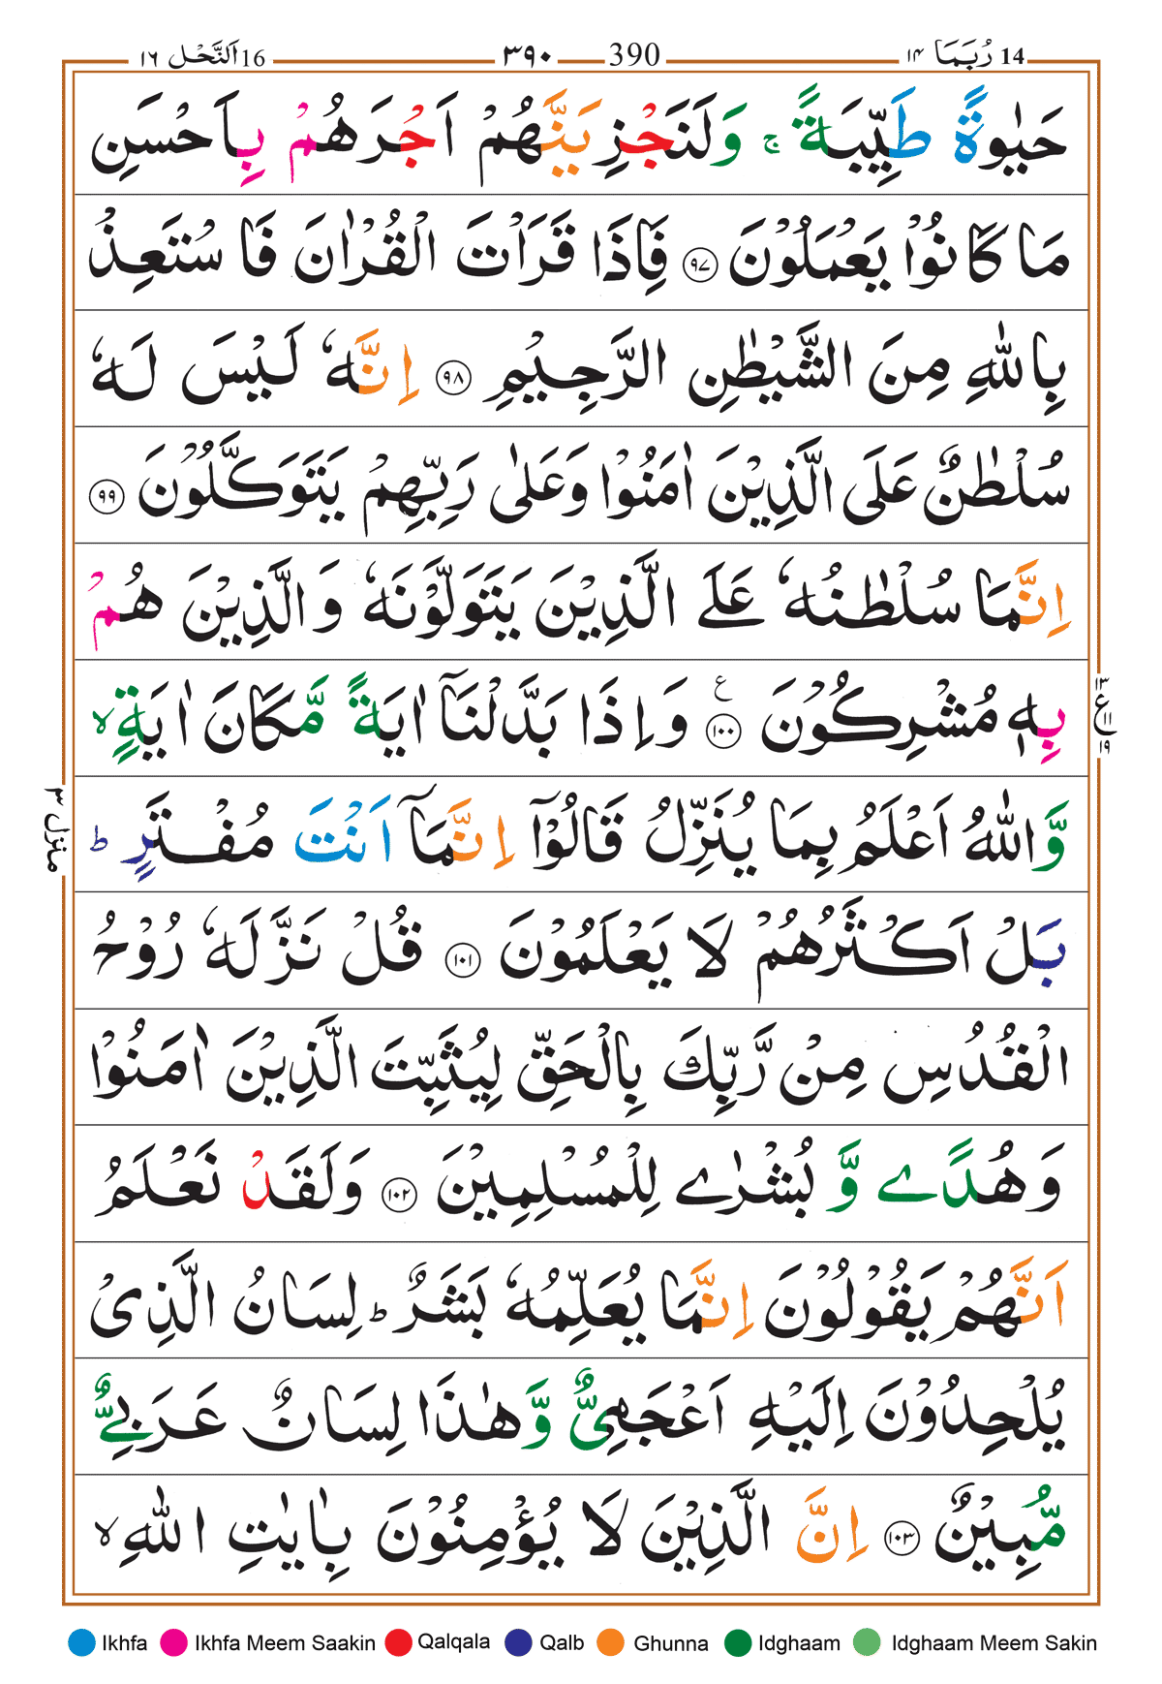 14 رُبَمَا ١٤ 390 ٣٩٠ 16 اَلنَّحْل ١٦
حَيٰوةً طَيِّبَةً ۚ وَلَنَجْزِيَنَّهُمْ اَجْرَهُمْ بِاَحْسَنِ
مَا كَانُوْا يَعْمَلُوْنَ ﴿٩٧﴾ فَاِذَا قَرَاْتَ الْقُرْاٰنَ فَاسْتَعِذْ
بِاللّٰهِ مِنَ الشَّيْطٰنِ الرَّجِيْمِ ﴿٩٨﴾ اِنَّهٗ لَيْسَ لَهٗ
سُلْطٰنٌ عَلَى الَّذِيْنَ اٰمَنُوْا وَعَلٰى رَبِّهِمْ يَتَوَكَّلُوْنَ ﴿٩٩﴾
اِنَّمَا سُلْطٰنُهٗ عَلَى الَّذِيْنَ يَتَوَلَّوْنَهٗ وَالَّذِيْنَ هُمْ
بِهٖ مُشْرِكُوْنَ ﴿١٠٠﴾ ع وَاِذَا بَدَّلْنَاۤ اٰيَةً مَّكَانَ اٰيَةٍ ۙ
ع ١٣ ١١ ١٩
وَّاللّٰهُ اَعْلَمُ بِمَا يُنَزِّلُ قَالُوْۤا اِنَّمَاۤ اَنْتَ مُفْتَرٍ ؕ
منزل ٣
بَلْ اَكْثَرُهُمْ لَا يَعْلَمُوْنَ ﴿١٠١﴾ قُلْ نَزَّلَهٗ رُوْحُ
الْقُدُسِ مِنْ رَّبِّكَ بِالْحَقِّ لِيُثَبِّتَ الَّذِيْنَ اٰمَنُوْا
وَهُدًى وَّبُشْرٰى لِلْمُسْلِمِيْنَ ﴿١٠٢﴾ وَلَقَدْ نَعْلَمُ
اَنَّهُمْ يَقُوْلُوْنَ اِنَّمَا يُعَلِّمُهٗ بَشَرٌ ؕ لِسَانُ الَّذِيْ
يُلْحِدُوْنَ اِلَيْهِ اَعْجَمِيٌّ وَّهٰذَا لِسَانٌ عَرَبِيٌّ
مُّبِيْنٌ ﴿١٠٣﴾ اِنَّ الَّذِيْنَ لَا يُؤْمِنُوْنَ بِاٰيٰتِ اللّٰهِ ۙ
Ikhfa Ikhfa Meem Saakin Qalqala Qalb Ghunna Idghaam Idghaam Meem Sakin